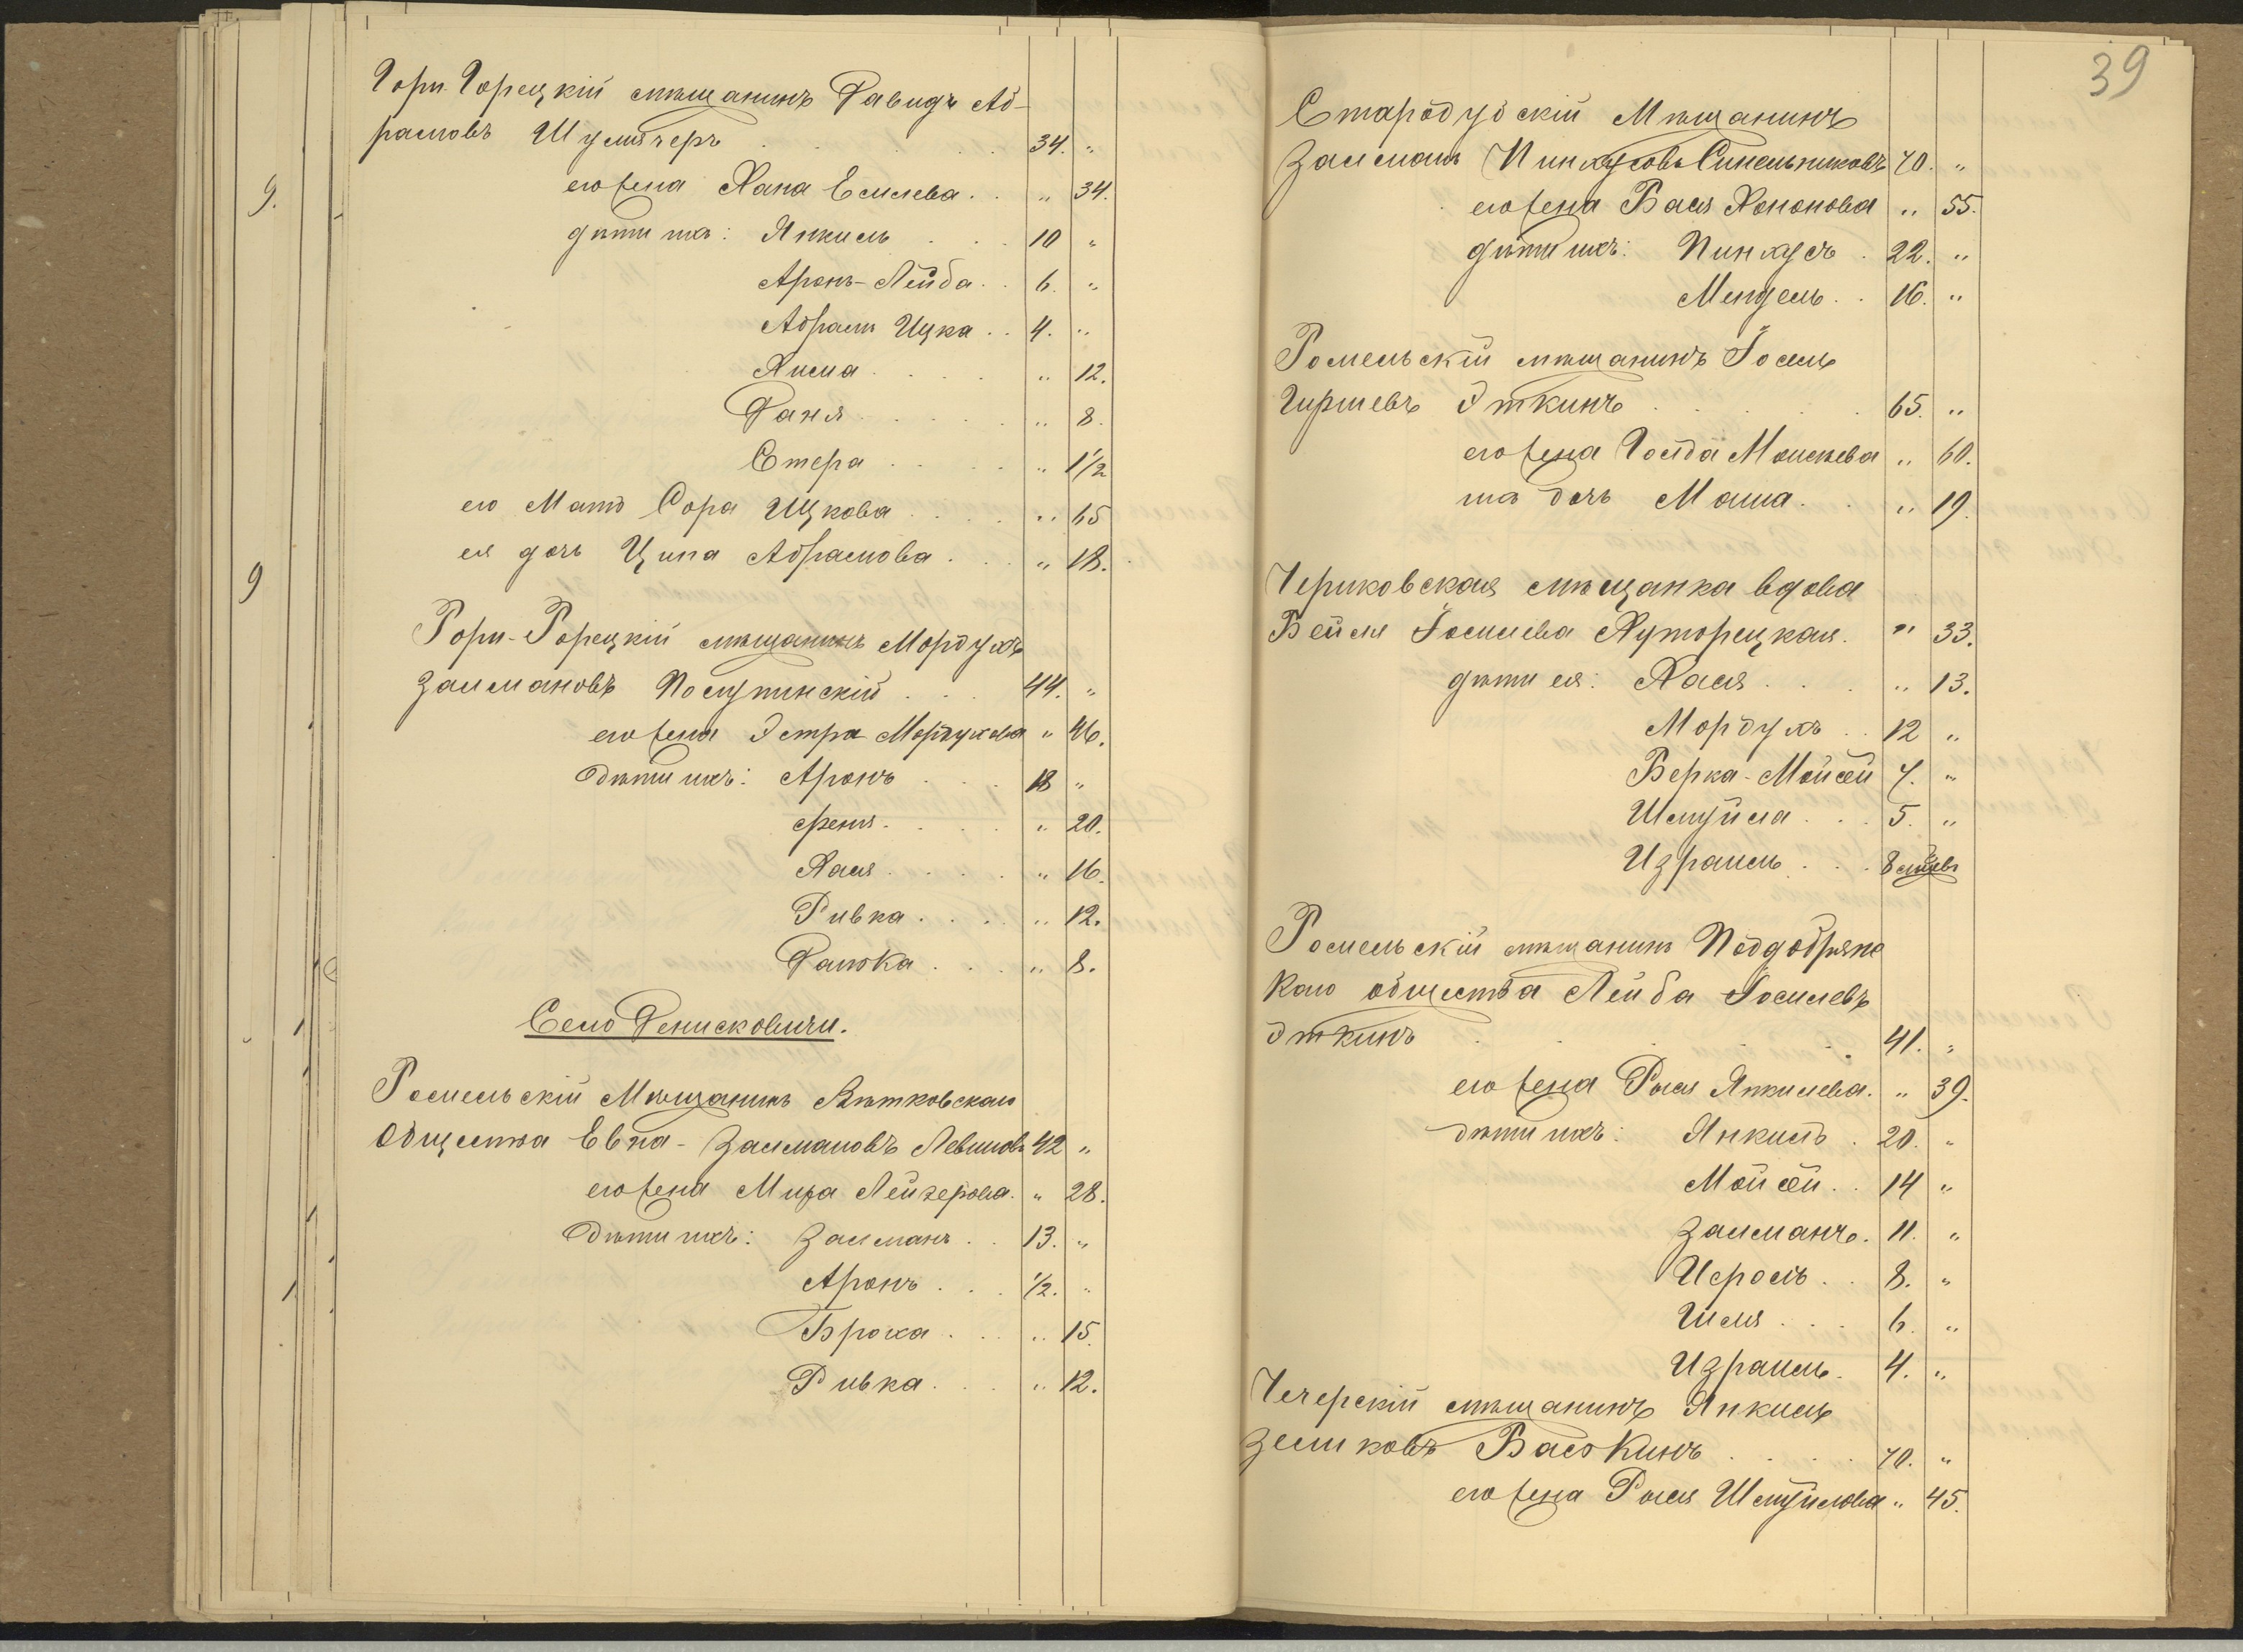 9.
9
Гори-Горецкій мѣщанинъ Давидъ Аб-
рамовъ Шумячеръ . . . 34. "
его жена Хана Есилева . . " 34.
дѣти ихъ: Янкиль . . . 10 "
Аронъ-Лейба . . 6. "
Абрамъ Ицка . . 4. "
Хися . . . . " 12.
Даня . . . . " 8.
Стера . . . . " 1½
его мать Сора Ицкова . . . " 65
ея дочь Ципа Абрамова . . . " 18.
Гори-Горецкій мѣщанинъ Мордухъ
Залмановъ Послупинскій . . . 44. "
его жена Эстра Мордухова " 46.
дѣти ихъ: Аронъ . . . 18 "
Феня . . . . " 20.
Хася . . . . " 16.
Ривка . . . . " 12.
Данька . . . " 8.
Село Денисковичи.
Гомельскій Мѣщанинъ Вѣтковскаго
Общества Евна-Залмановъ Левинъ 42 "
его жена Мира Лейзерова. " 28.
Дѣти ихъ: Залманъ . . 13. "
Аронъ . . . ½. "
Броха . . . " 15.
Ривка . . . " 12.
39
Стародубскій Мѣщанинъ
Залманъ Пинхусовъ Синельниковъ 70. "
его жена Бася Хононова " 55.
дѣти ихъ: Пинхусъ . 22. "
Мендель . . 16. "
Гомельскій мѣщанинъ Іосель
Гиршевъ Эткинъ . . . 65. "
его жена Гойда Моисеева " 60.
ихъ дочь Маша . . " 19.
Чериковская мѣщанка вдова
Бейля Іосилева Хуторецкая. " 33.
дѣти ея: Хася . . . " 13.
Мордухъ . . 12 "
Берка-Мойсей 7. "
Шмуйла . . . 5. "
Израиль . . . 8 мѣсяц.
Гомельскій мѣщанинъ Поддобрянс
каго общества Лейба Іосилевъ
Эткинъ . . . . 41. "
его жена Рыся Янкилева. " 39.
дѣти ихъ: Янкиль . 20. "
Мойсей . . 14 "
Залманъ . 11. "
Исроль . . 8. "
Шля . . . 6. "
Израиль . 4. "
Чечерскій мѣщанинъ Янкиль
Зеликовъ Баськинъ . . . 70. "
его жена Рыся Шмуйлова " 45.